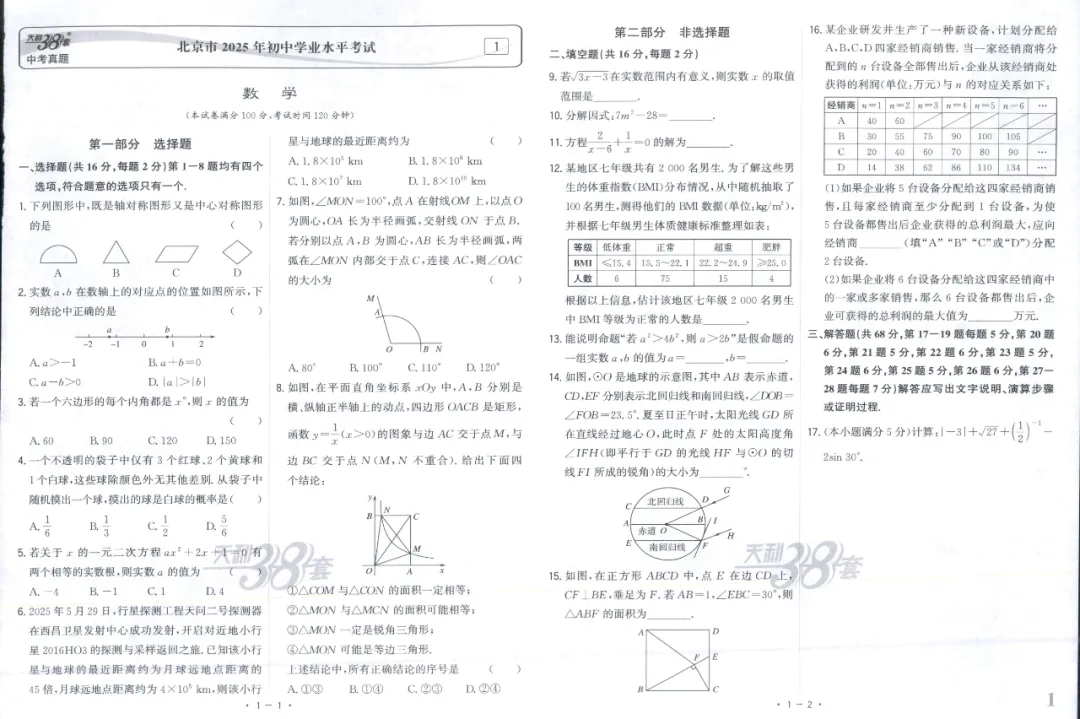 天利38套
中考真题
北京市2025年初中学业水平考试
1
数 学
(本试卷满分100分,考试时间120分钟)
第一部分 选择题
一、选择题(共16分,每题2分)第1—8题均有四个
选项,符合题意的选项只有一个.
1. 下列图形中,既是轴对称图形又是中心对称图形
的是 ( )
A B C D
2. 实数a,b在数轴上的对应点的位置如图所示,下
列结论中正确的是 ( )
a b
-2 -1 0 1 2
A. a>-1 B. a+b=0
C. a-b>0 D. |a|>|b|
3. 若一个六边形的每个内角都是x°,则x的值为
( )
A. 60 B. 90 C. 120 D. 150
4. 一个不透明的袋子中仅有3个红球、2个黄球和
1个白球,这些球除颜色外无其他差别. 从袋子中
随机摸出一个球,摸出的球是白球的概率是( )
A. 1/6 B. 1/3 C. 1/2 D. 5/6
5. 若关于x的一元二次方程ax²+2x+1=0有
两个相等的实数根,则实数a的值为 ( )
A. -4 B. -1 C. 1 D. 4
6. 2025年5月29日,行星探测工程天问二号探测器
在西昌卫星发射中心成功发射,开启对近地小行
星2016HO3的探测与采样返回之旅. 已知该小行
星与地球的最近距离约为月球远地点距离的
45倍,月球远地点距离约为4×10⁵ km,则该小行
· 1-1 ·
星与地球的最近距离约为 ( )
A. 1.8×10⁵ km B. 1.8×10⁶ km
C. 1.8×10⁷ km D. 1.8×10¹⁰ km
7. 如图,∠MON=100°,点A在射线OM上,以点O
为圆心,OA长为半径画弧,交射线ON于点B.
若分别以点A,B为圆心,AB长为半径画弧,两
弧在∠MON内部交于点C,连接AC,则∠OAC
的大小为 ( )
M
A
O B N
A. 80° B. 100° C. 110° D. 120°
8. 如图,在平面直角坐标系xOy中,A,B分别是
横、纵轴正半轴上的动点,四边形OACB是矩形,
函数y=1/x(x>0)的图象与边AC交于点M,与
边BC交于点N(M,N不重合). 给出下面四
个结论:
y
B N C
M
O A x
①△COM与△CON的面积一定相等;
②△MON与△MCN的面积可能相等;
③△MON一定是锐角三角形;
④△MON可能是等边三角形.
上述结论中,所有正确结论的序号是 ( )
A. ①③ B. ①④ C. ②③ D. ②④
第二部分 非选择题
二、填空题(共16分,每题2分)
9. 若√(3x-3)在实数范围内有意义,则实数x的取值
范围是______.
10. 分解因式:7m²-28=______.
11. 方程2/(x-6)+1/x=0的解为______.
12. 某地区七年级共有2 000名男生. 为了解这些男
生的体重指数(BMI)分布情况,从中随机抽取了
100名男生,测得他们的BMI数据(单位:kg/m²),
并根据七年级男生体质健康标准整理如表:
等级 低体重 正常 超重 肥胖
BMI ≤15.4 15.5~22.1 22.2~24.9 ≥25.0
人数 6 75 15 4
根据以上信息,估计该地区七年级2 000名男生
中BMI等级为正常的人数是______.
13. 能说明命题“若a²>4b²,则a>2b”是假命题的
一组实数a,b的值为a=______,b=______.
14. 如图,⊙O是地球的示意图,其中AB表示赤道,
CD,EF分别表示北回归线和南回归线,∠DOB=
∠FOB=23.5°. 夏至日正午时,太阳光线GD所
在直线经过地心O,此时点F处的太阳高度角
∠IFH(即平行于GD的光线HF与⊙O的切
线FI所成的锐角)的大小为______°.
G
C 北回归线 D
A B I
赤道 O
H
E 南回归线 F
天利38套 天利38套
15. 如图,在正方形ABCD中,点E在边CD上,
CF⊥BE,垂足为F. 若AB=1,∠EBC=30°,则
△ABF的面积为______.
A D
F E
B C
· 1-2 ·
16. 某企业研发并生产了一种新设备,计划分配给
A,B,C,D四家经销商销售. 当一家经销商将分
配到的n台设备全部售出后,企业从该经销商处
获得的利润(单位:万元)与n的对应关系如下:
经销商 n=1 n=2 n=3 n=4 n=5 n=6 …
A 40 60
B 30 55 75 90 100 105
C 20 40 60 70 80 90 …
D 14 38 62 86 110 134 …
(1)如果企业将5台设备分配给这四家经销商销
售,且每家经销商至少分配到1台设备,为使
5台设备都售出后企业获得的总利润最大,应向
经销商______(填“A”“B”“C”或“D”)分配
2台设备.
(2)如果企业将6台设备分配给这四家经销商中
的一家或多家销售,那么6台设备都售出后,企
业可获得的总利润的最大值为______万元.
三、解答题(共68分,第17—19题每题5分,第20题
6分,第21题5分,第22题6分,第23题5分,
第24题6分,第25题5分,第26题6分,第27—
28题每题7分)解答应写出文字说明、演算步骤
或证明过程.
17. (本小题满分5分)计算:|-3|+√27+(1/2)⁻¹-
2sin 30°.
1